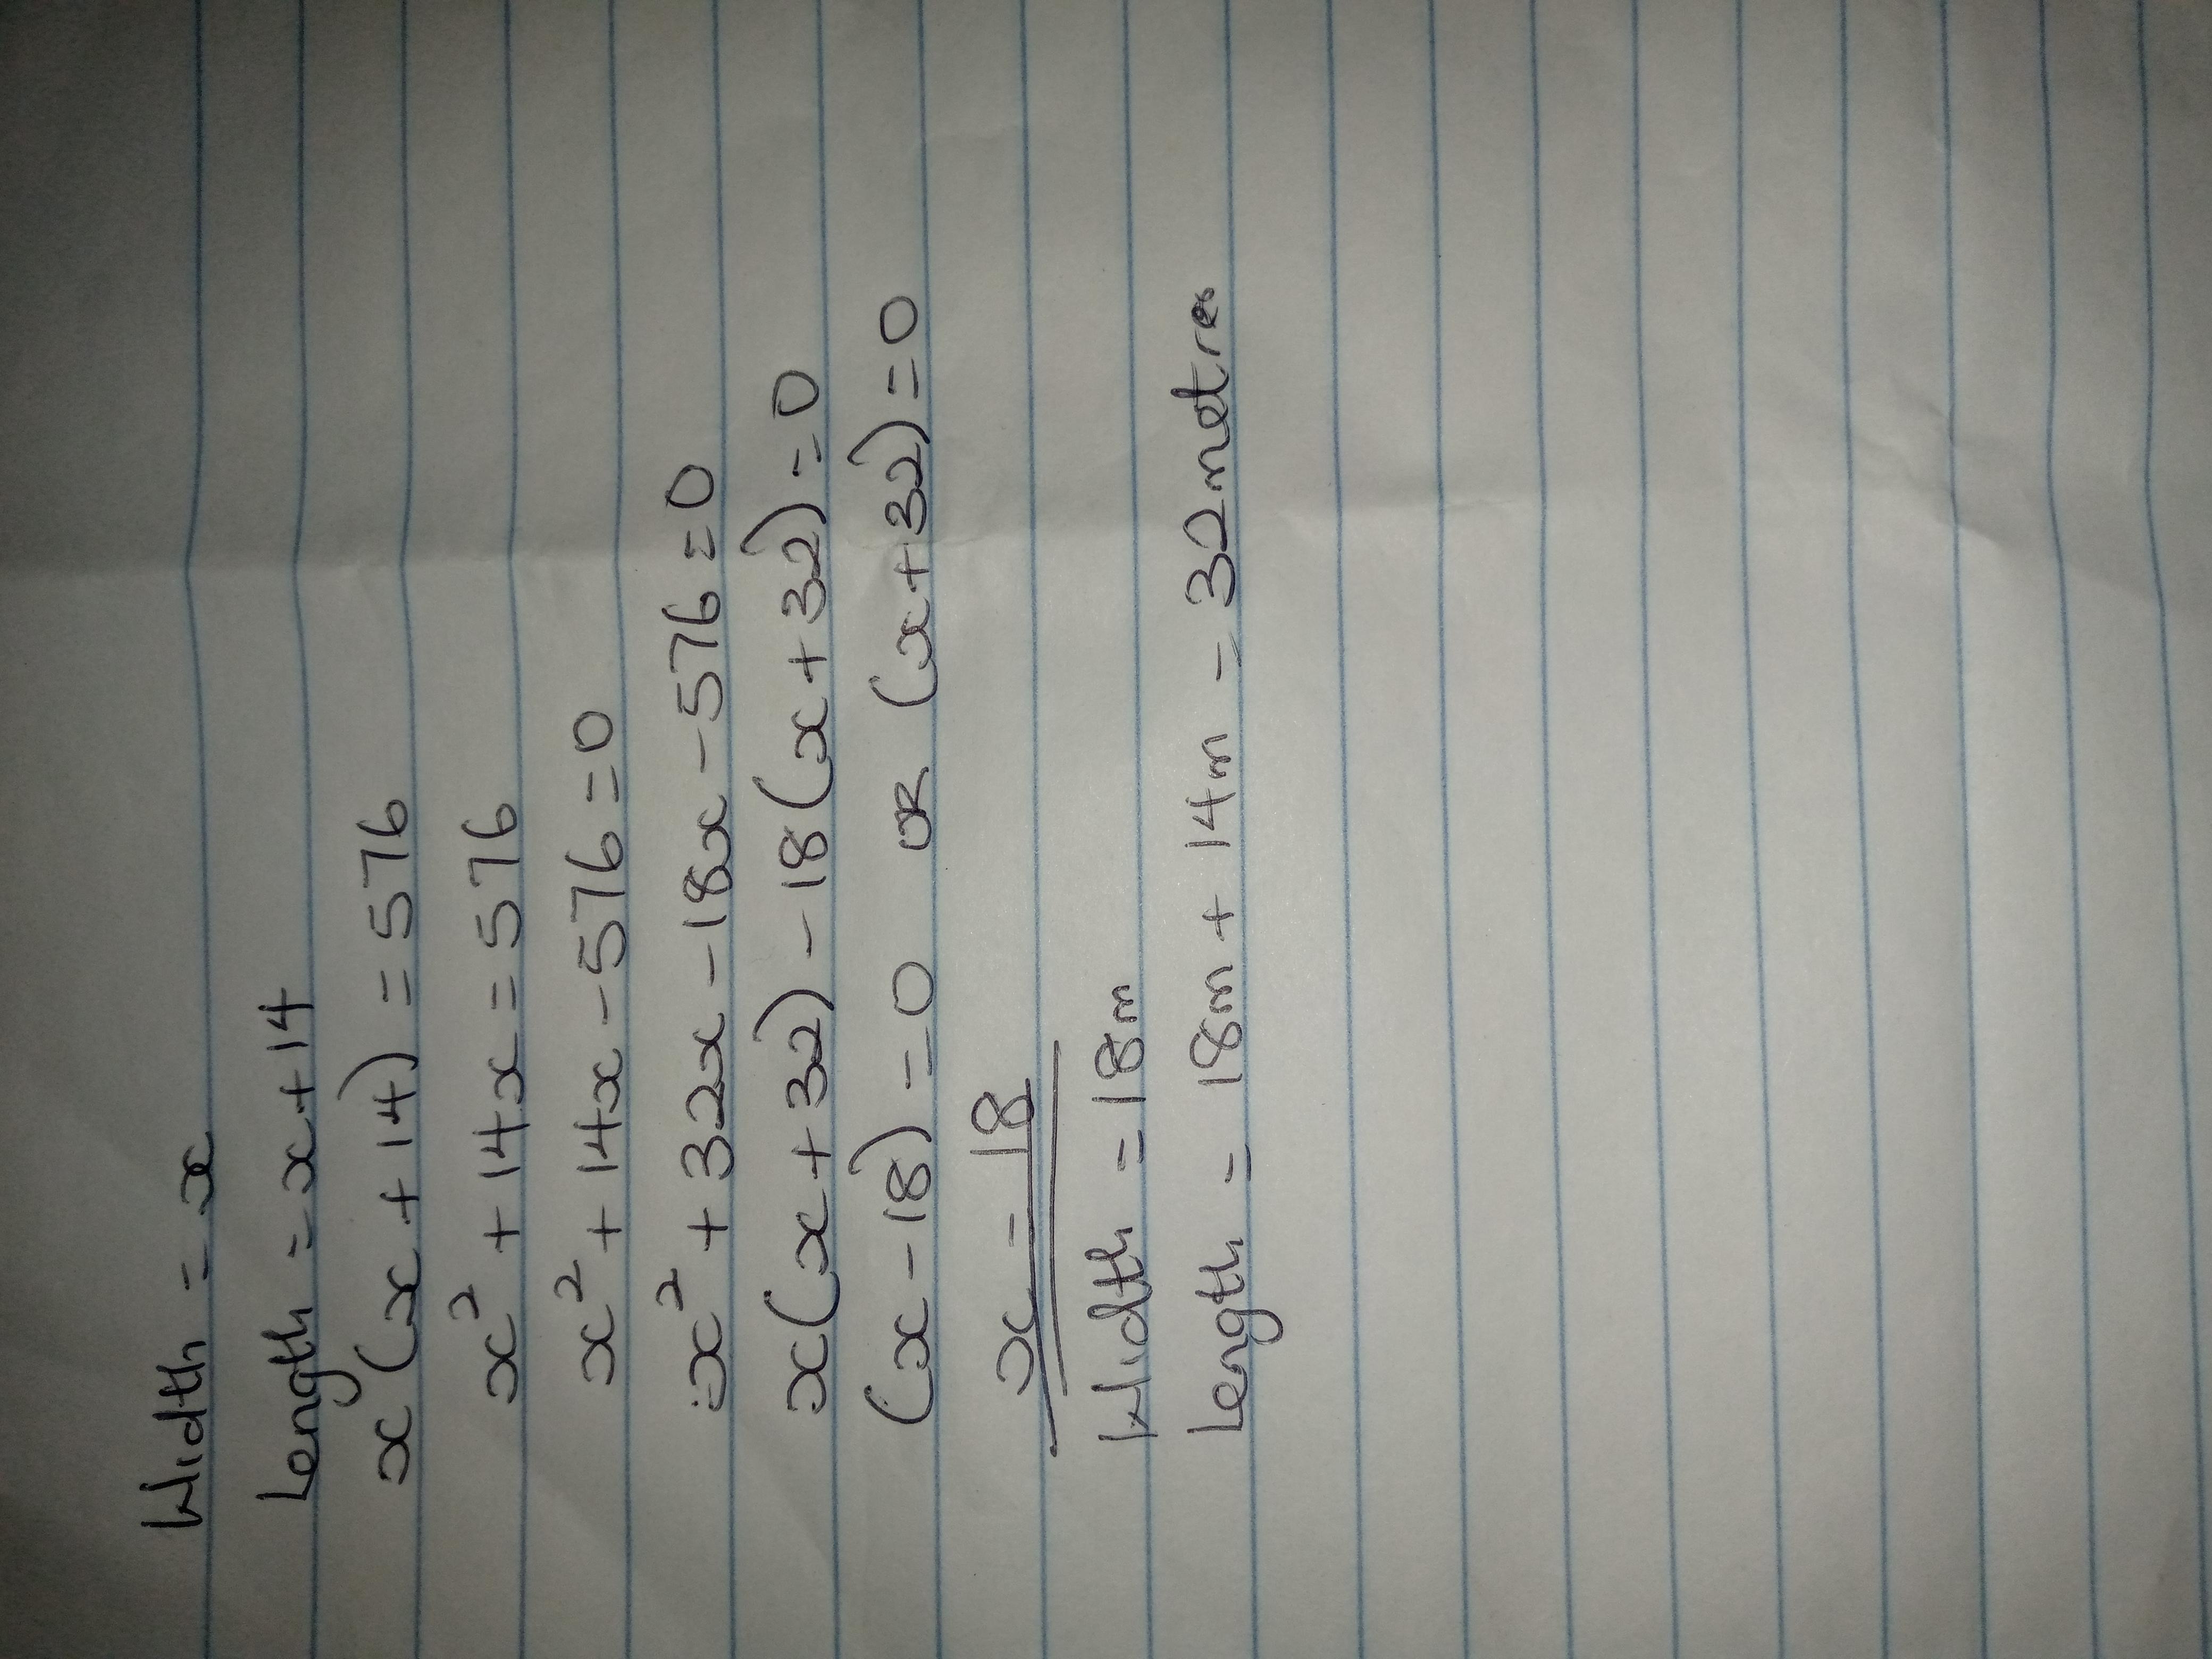 Width = x
Length = x + 14
x(x + 14) = 576
x² + 14x = 576
x² + 14x - 576 = 0
x² + 32x - 18x - 576 = 0
x(x + 32) - 18(x + 32) = 0
(x - 18) = 0 OR (x + 32) = 0
x = 18
Width = 18m
Length = 18m + 14m = 32metres